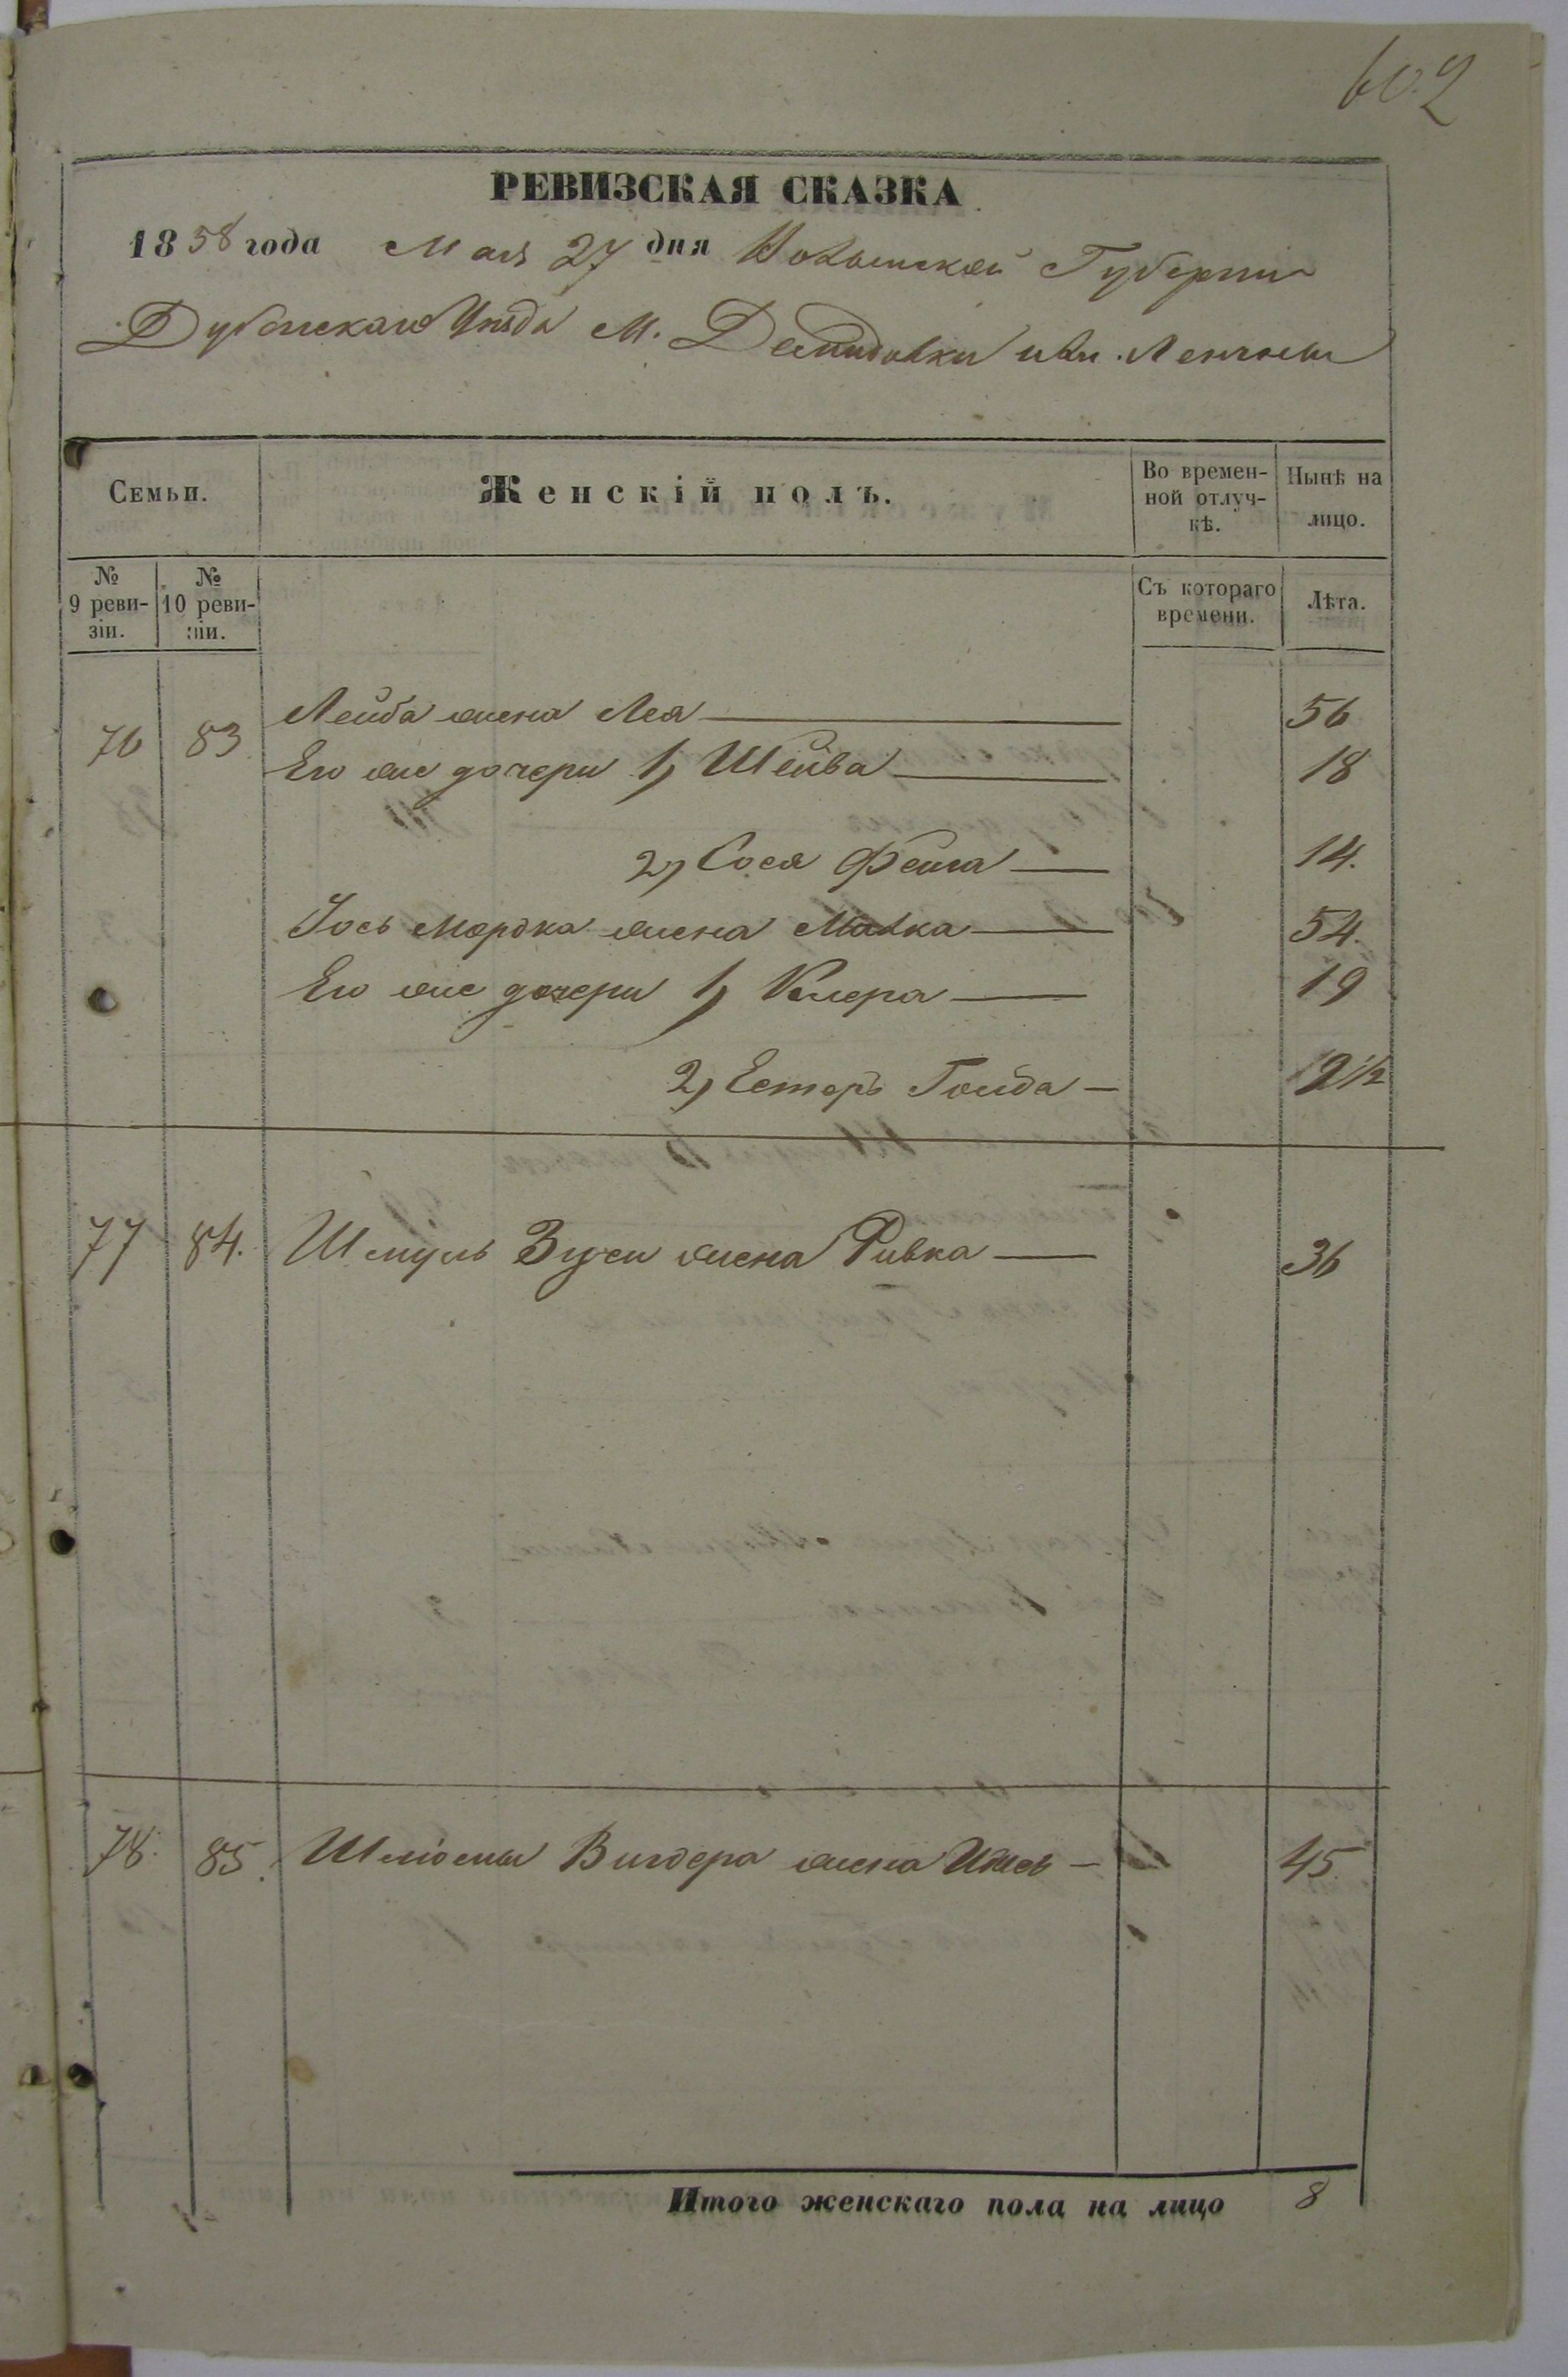 602
РЕВИЗСКАЯ СКАЗКА
1858 года Мая 27 дня Волынской Губернии
Дубенскаго Уезда М. Демидовки
Семьи. Женскій полъ. Во времен-ной отлуч-кѣ. Нынѣ на лицо.
№ 9 реви-зіи. № 10 реви-зіи. Съ котораго времени. Лѣта.
76 83 Лейба жена Лея 56
Его же дочери 1) Шейва 18
2) Сося Фейга 14.
Іось Мордка жена Малка 54.
Его же дочери 1) 19
2) Естеръ Гольда 12 1/2
77 84. Шмуль Зуси жена Ривка 36
78. 85. жена 45.
Итого женскаго пола на лицо 8